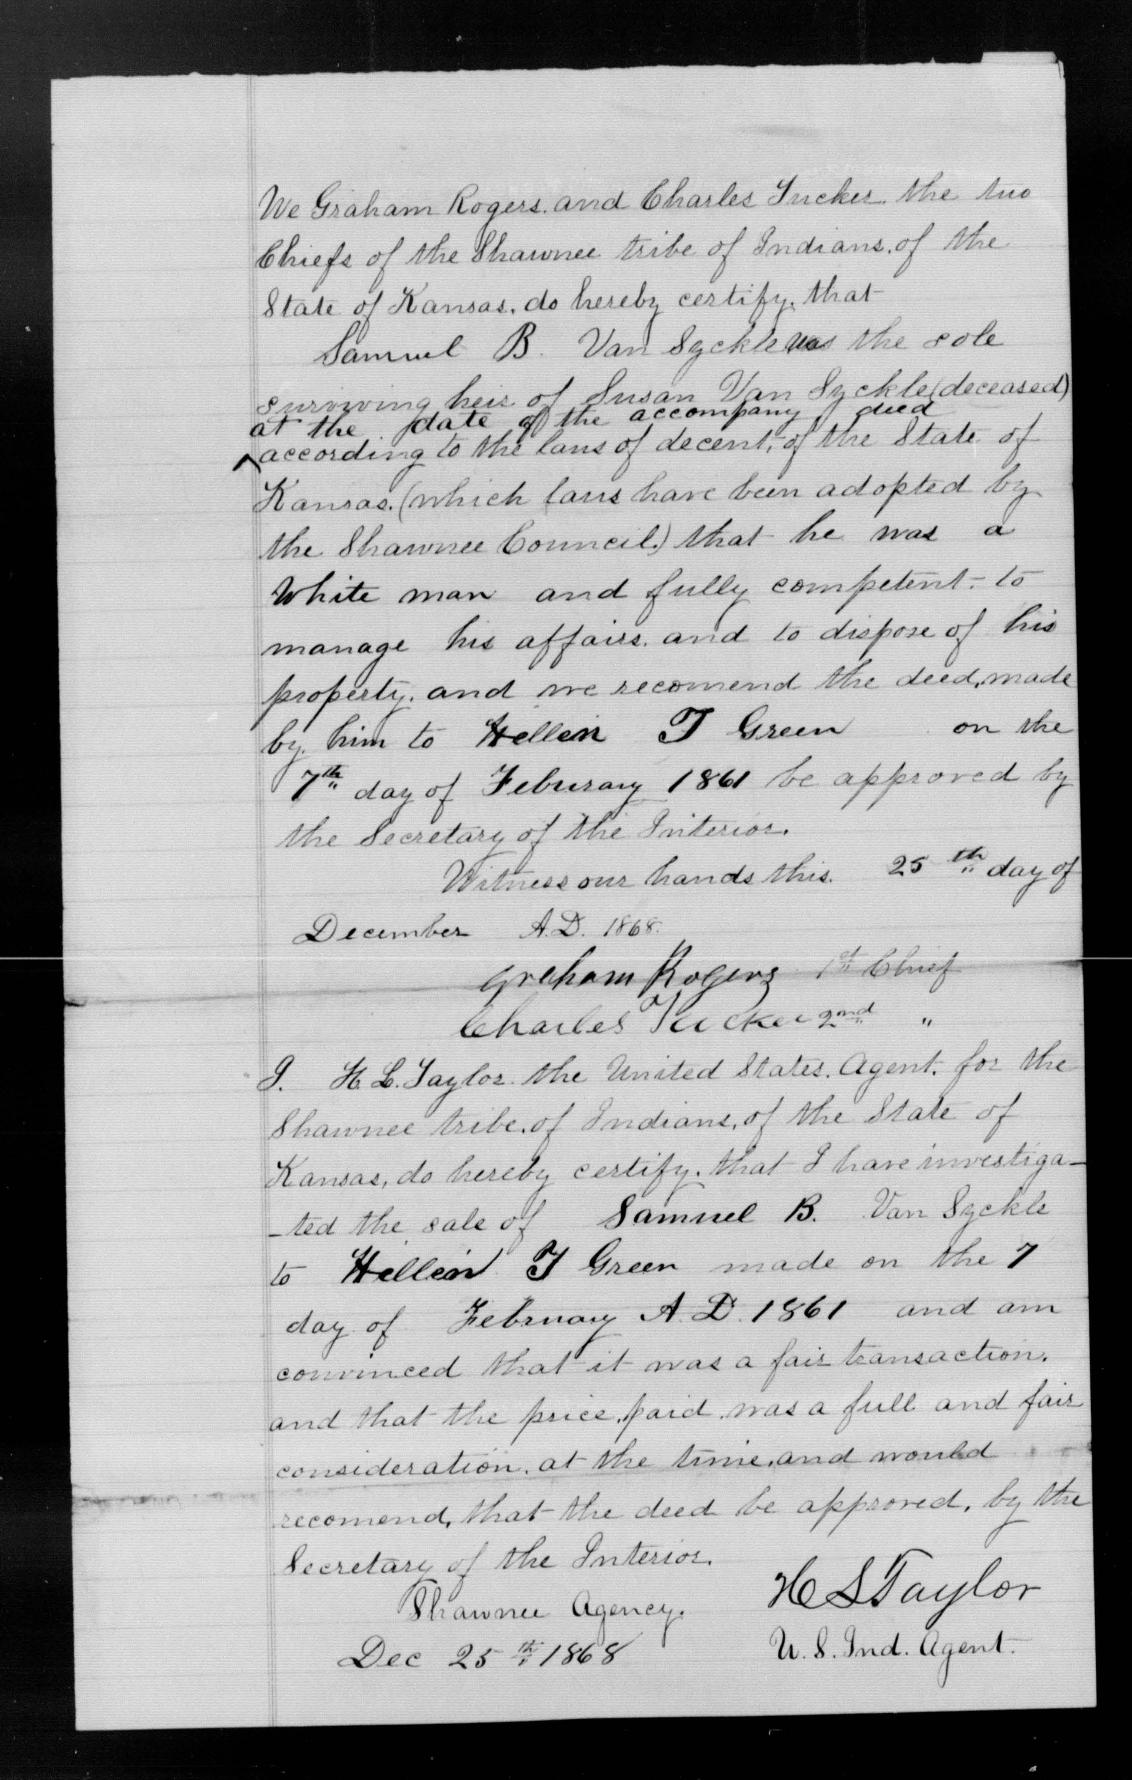 We Graham Rogers. and Charles Tucker the two
Chiefs of the Shawnee tribe of Indians. of the
State of Kansas. do hereby certify. that
Samuel B. Van Syckle was the sole
surviving heir of Susan Van Syckle (deceased)
at the date of the accompany deed
^ according to the laws of decent, of the State of
Kansas. (which laws have been adopted by
the Shawnee Council.) that he was a
White man and fully competent to
manage his affairs. and to dispose of his
property. and we recomend the deed, made
by him to Hellen T Green on the
7th day of Feburary 1861 be approved by
the Secretary of the Interior.
Witness our hands this. 25th day of
December A.D. 1868.
Graham Rogers 1st Chief
Charles Tucker 2nd "
I. H. L. Taylor the United States. Agent. for the
Shawnee tribe. of Indians, of the State of
Kansas, do hereby certify. that I have investiga-
-ted the sale of Samuel B. Van Syckle
to Hellen T Green made on the 7
day of February A.D. 1861 and am
convinced that it was a fair transaction.
and that the price, paid was a full and fair
consideration. at the time, and would
recomend, that the deed be approved, by the
Secretary of the Interior.
Shawnee Agency. H L Taylor
Dec 25th 1868 U. S. Ind. Agent.